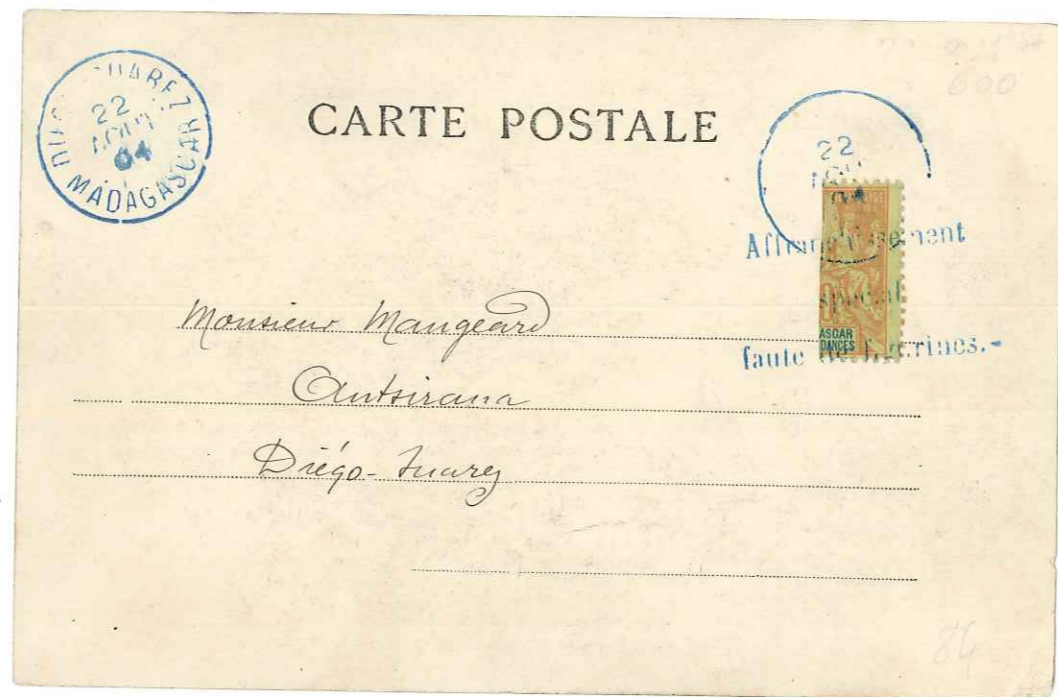 MADAGASCAR
22
04
CARTE POSTALE
600
22
Affranchissement
spécial
faute de figurines.-
ASCAR
DANCES
Monsieur Mangeard
Antsirana
Diégo-Suarez
84